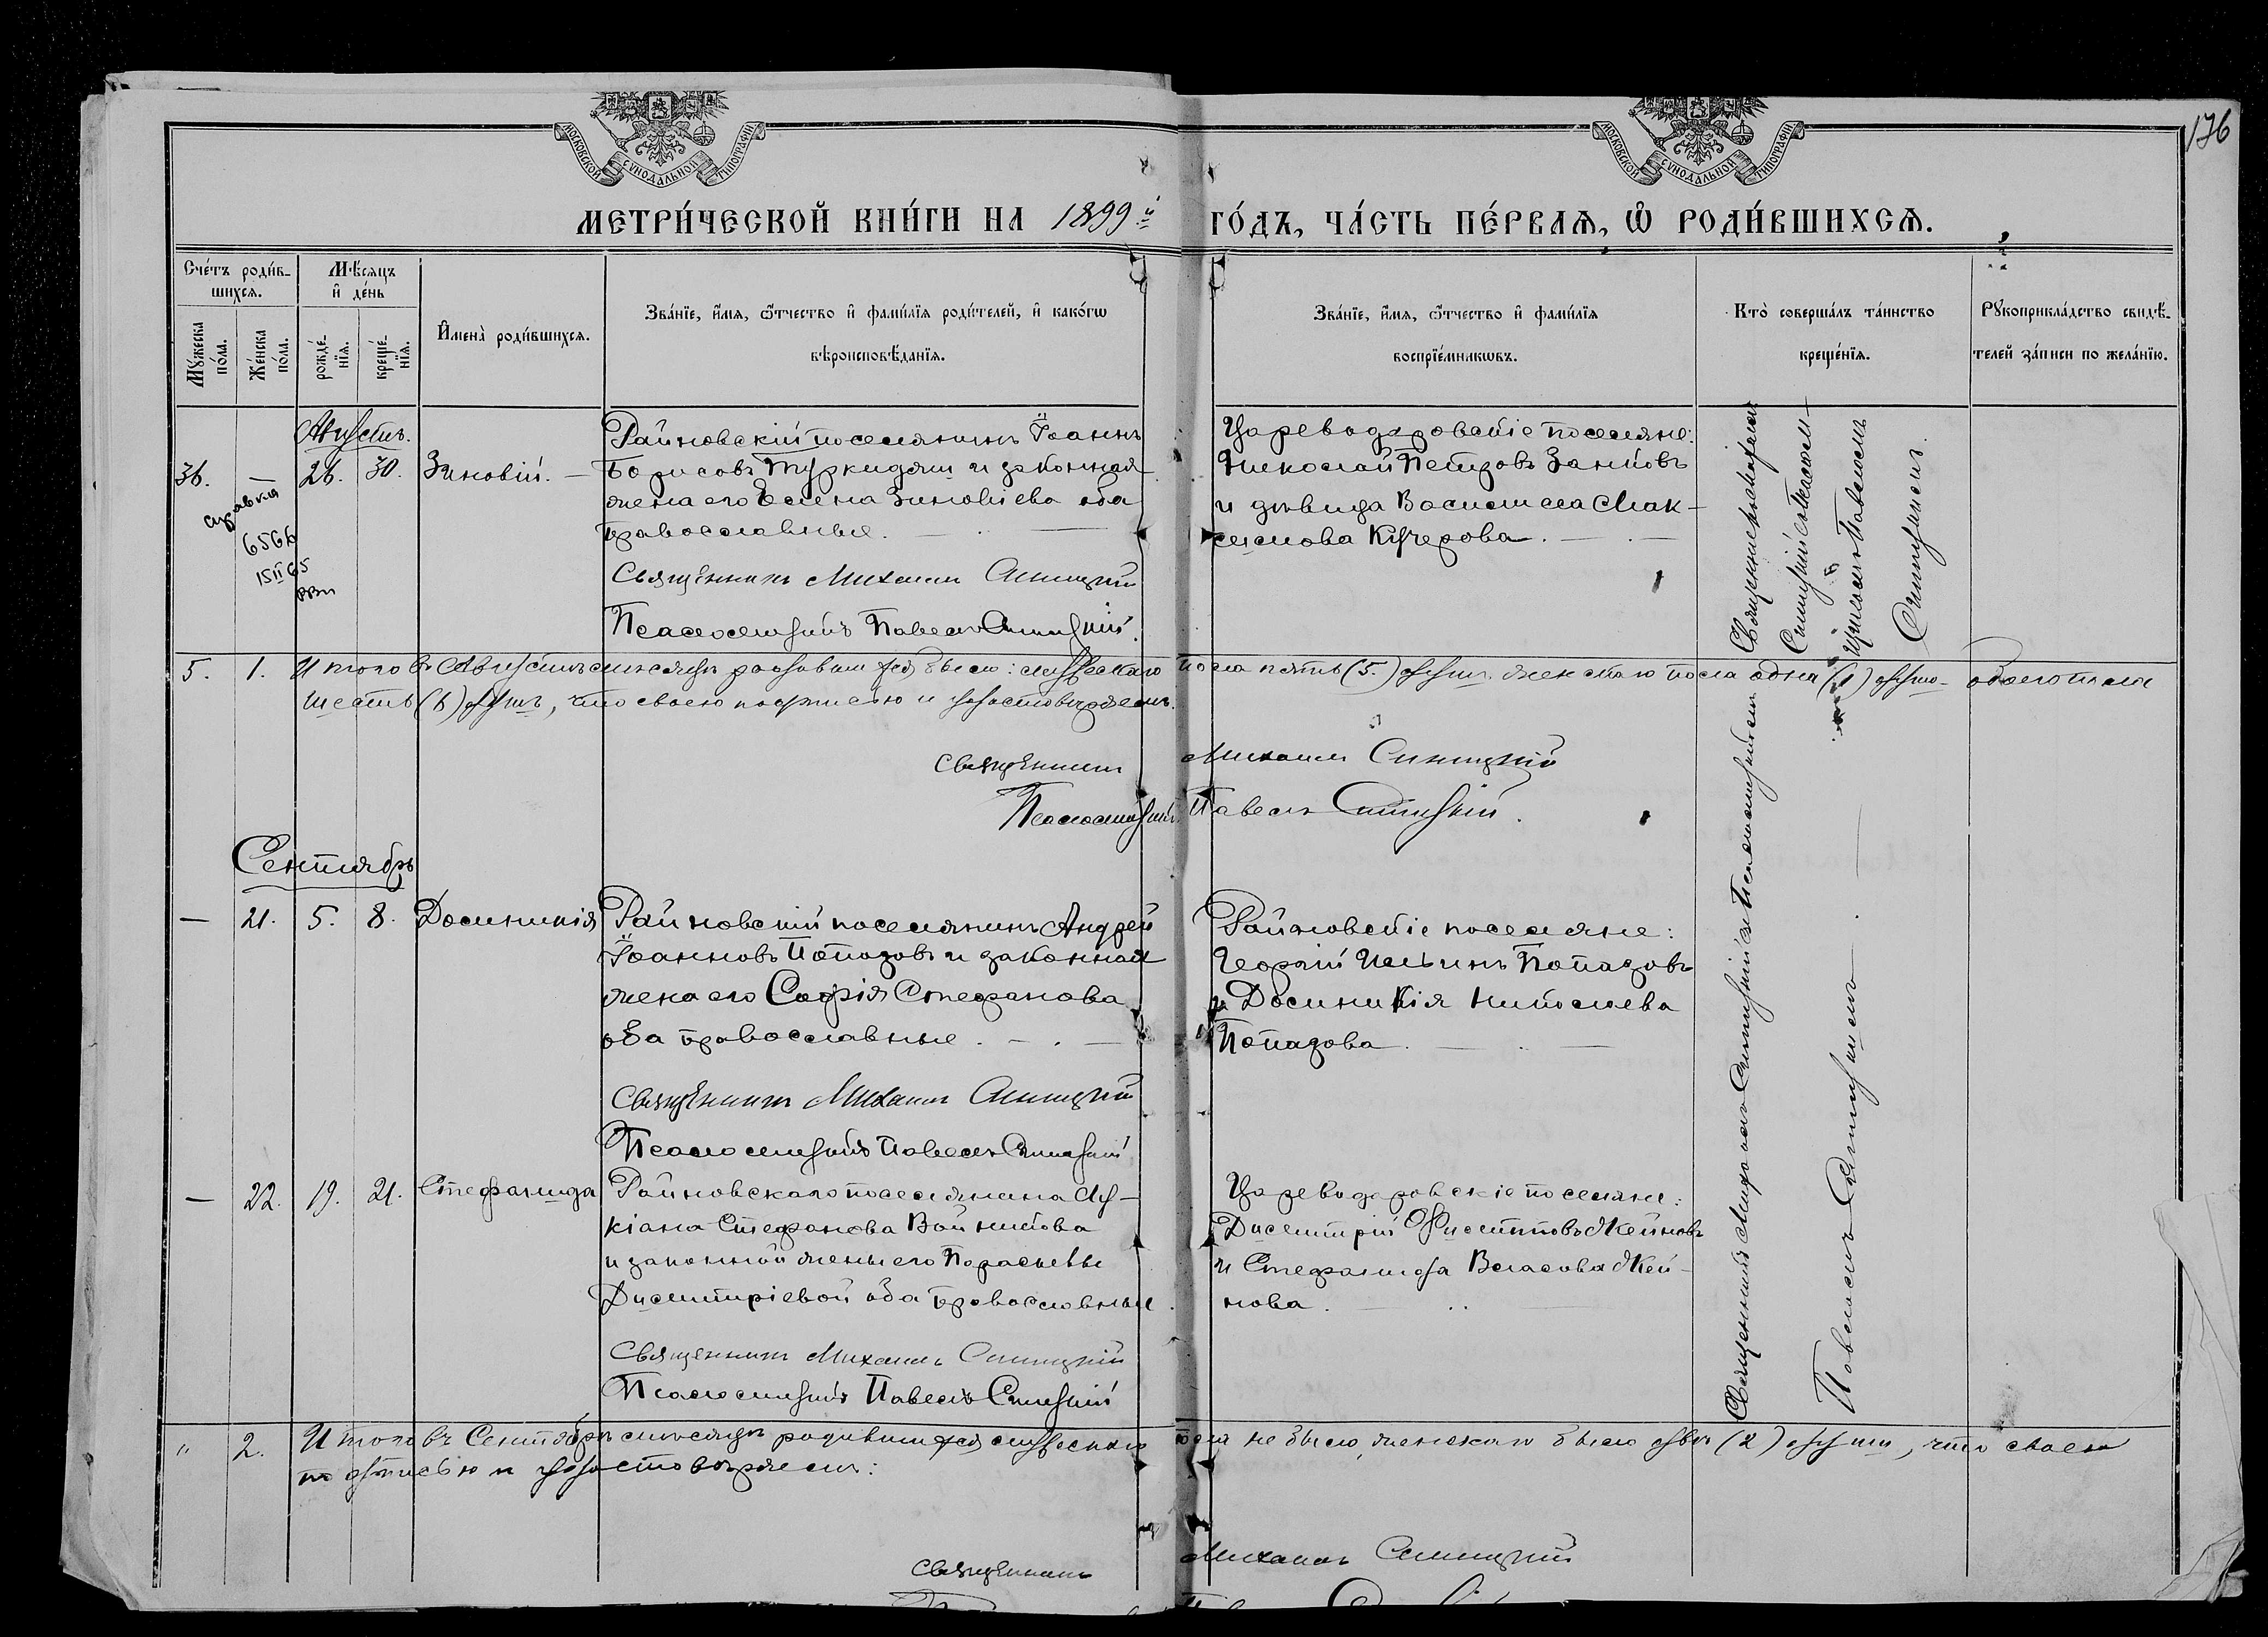 176
МОСКОВСКОЙ СѴНОДАЛЬНОЙ ТИПОГРАФІИ
МОСКОВСКОЙ СѴНОДАЛЬНОЙ ТИПОГРАФІИ
МЕТРИ́ЧЕСКОЙ КНИ́ГИ НА 1899й ГО́ДЪ, ЧА́СТЬ ПЕ́РВАѦ, Ѡ҆ РОДИ́ВШИХСѦ.
Сче́тъ роди́в-
шихсѧ.
Мꙋжеска по́ла.
Же́нска по́ла.
Мѣ́сѧцъ
и҆ де́нь
рожде́-нїѧ.
креще́-нїѧ.
И҆мена̀ роди́вшихсѧ.
Зва́нїе, и҆́мѧ, ѻ҆́тчество и҆ фами́лїѧ роди́телей, и҆ како́гѡ
вѣроисповѣ́данїѧ.
Зва́нїе, и҆́мѧ, ѻ҆́тчество и҆ фами́лїѧ
воспрїе́мникѡвъ.
Кто̀ соверша́лъ та́инство
креще́нїѧ.
Рꙋкоприкла́дство свидѣ́-
телей за́писи по жела́нїю.
Августъ.
36. — 26. 30. Зиновій. —
справка
656б
15 II 65
Райновскій поселянинъ Іоаннъ
Борисовъ Туркиджи и законная
жена его Елена Зиновіева оба
православные.
Священникъ Михаилъ Синицкій
Псаломщикъ Павелъ Синицкій.
Цареводаровскіе поселяне:
Николай Петровъ Занковъ
и дѣвица Василиса Мак-
симова Кучерова.
Павломъ
Синицкимъ.
5. 1. Итого въ Августѣ мѣсяцѣ родившихся было: мужескаго пола пять (5) душъ женскаго пола одна (1) душа обоего пола
шесть (6) душъ, что своею подписью и удостовѣряемъ.
Священникъ Михаилъ Синицкій
Псаломщикъ Павелъ Синицкій.
Сентябрь
— 21. 5. 8. Домникія
Райновскій поселянинъ Андрей
Іоанновъ Попазовъ и законная
жена его Софія Стефанова
оба православные.
Священникъ Михаилъ Синицкій
Псаломщикъ Павелъ Синицкій
Райновскіе поселяне:
Георгій Ильинъ Попазовъ
и Домникія
Попазова
Священникъ Михаилъ Синицкій съ Псаломщикомъ
Павломъ Синицкимъ
— 22. 19. 21. Стефанида
Райновскаго поселянина Лу-
кіана Стефанова Войникова
и законной жены его Параскевы
Димитріевой оба православные.
Священникъ Михаилъ Синицкій
Псаломщикъ Павелъ Синицкій
Цареводаровскіе поселяне:
Димитрій Филипповъ Жейновъ
и Стефанида Власова Жей-
нова.
" 2. Итого въ Сентябрѣ мѣсяцѣ родившихся мужескаго пола не было, женскаго было двѣ (2) души, что своею
подписью и удостовѣряемъ:
Священникъ Михаилъ Синицкій